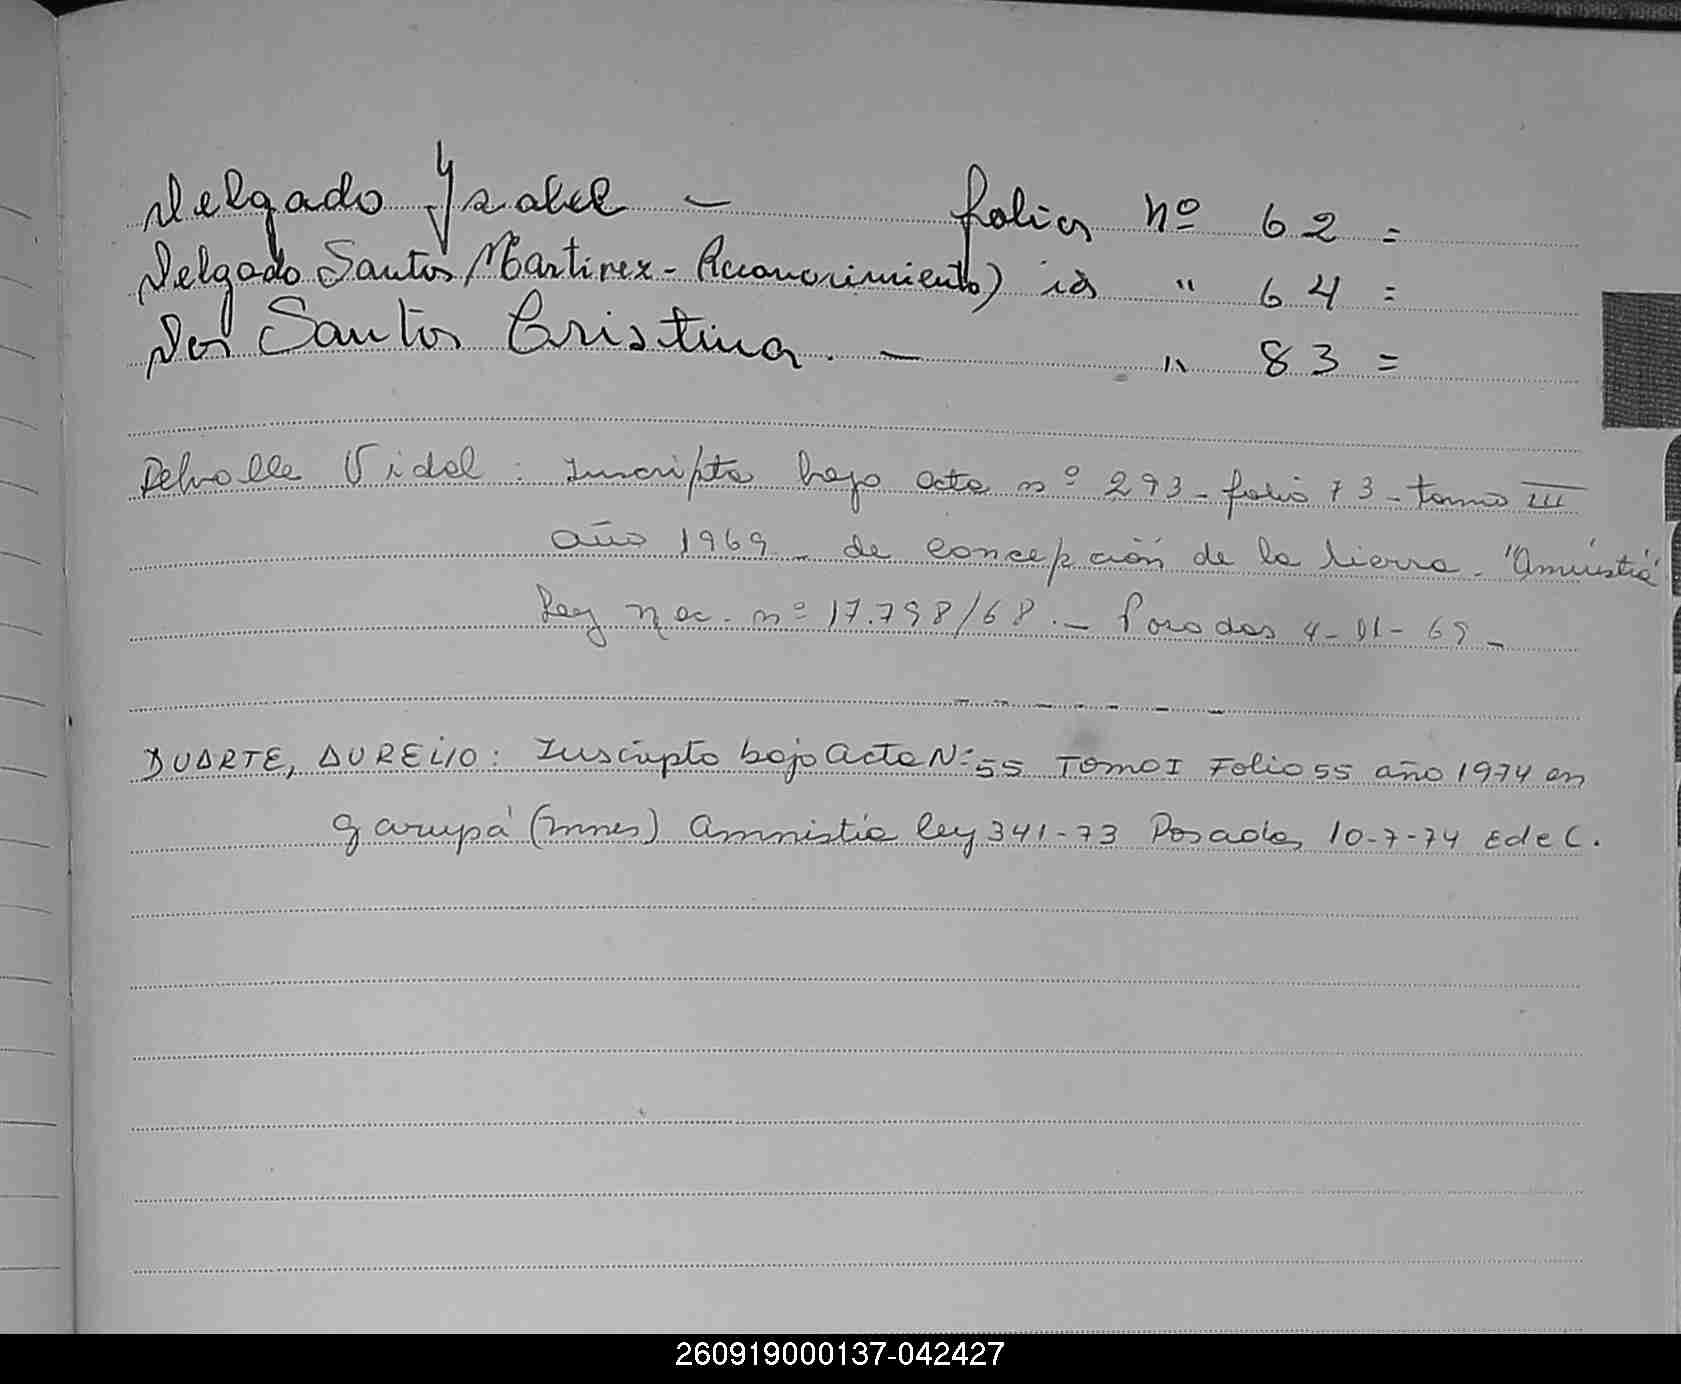 Delgado Ysabel – folios nº 62 =
Delgado Santos Martinez - Reconocimiento) id " 64 =
Dos Santos Cristina. – " 83 =
Delvalle Vidal: Inscripto bajo acta nº 293 - folio 73 - tomo III
año 1969 - de concepción de la sierra - "Amnistia"
Ley nac. nº 17.798/68. - Posadas 4- -69 -
DUARTE, AURELIO: Inscripto bajo Acta Nº 55 TOMO I Folio 55 año 1974 en
garupá (mnes) amnistia ley 341-73 Posadas 10-7-74 E de C.
260919000137-042427